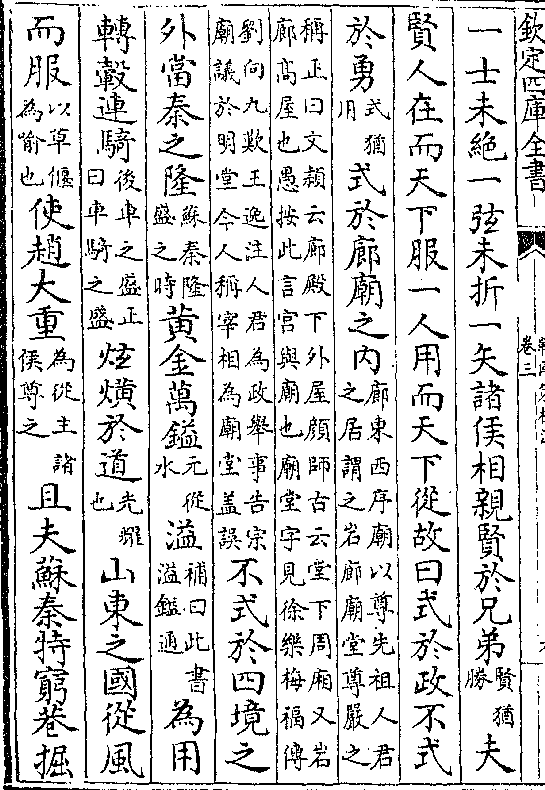 欽定四庫全書
卷三
一士未絶一弦未折一矢諸侯相親賢於兄弟賢猶勝夫
賢人在而天下服一人用而天下從故曰式於政不式
於勇式猶用式於廊廟之内廊東西序廟以尊先祖人君之居謂之岩廊廟堂尊嚴之
稱正曰文頴云廊殿下外屋顔師古云堂下周廂又岩廊髙屋也愚按此言宫與廟也廟堂字見徐樂梅福傳
劉向九歎王逸注人君為政舉事告宗廟議於明堂今人稱宰相為廟堂盖誤不式於四境之
外當秦之隆蘇秦隆盛之時黄金萬鎰元從水溢補曰此書溢鎰通為用
轉轂連騎後車之盛正曰車騎之盛炫熿於道光耀也山東之國從風
而服以草偃為喻也使趙大重為從主諸侯尊之且夫蘇秦特窮巷掘